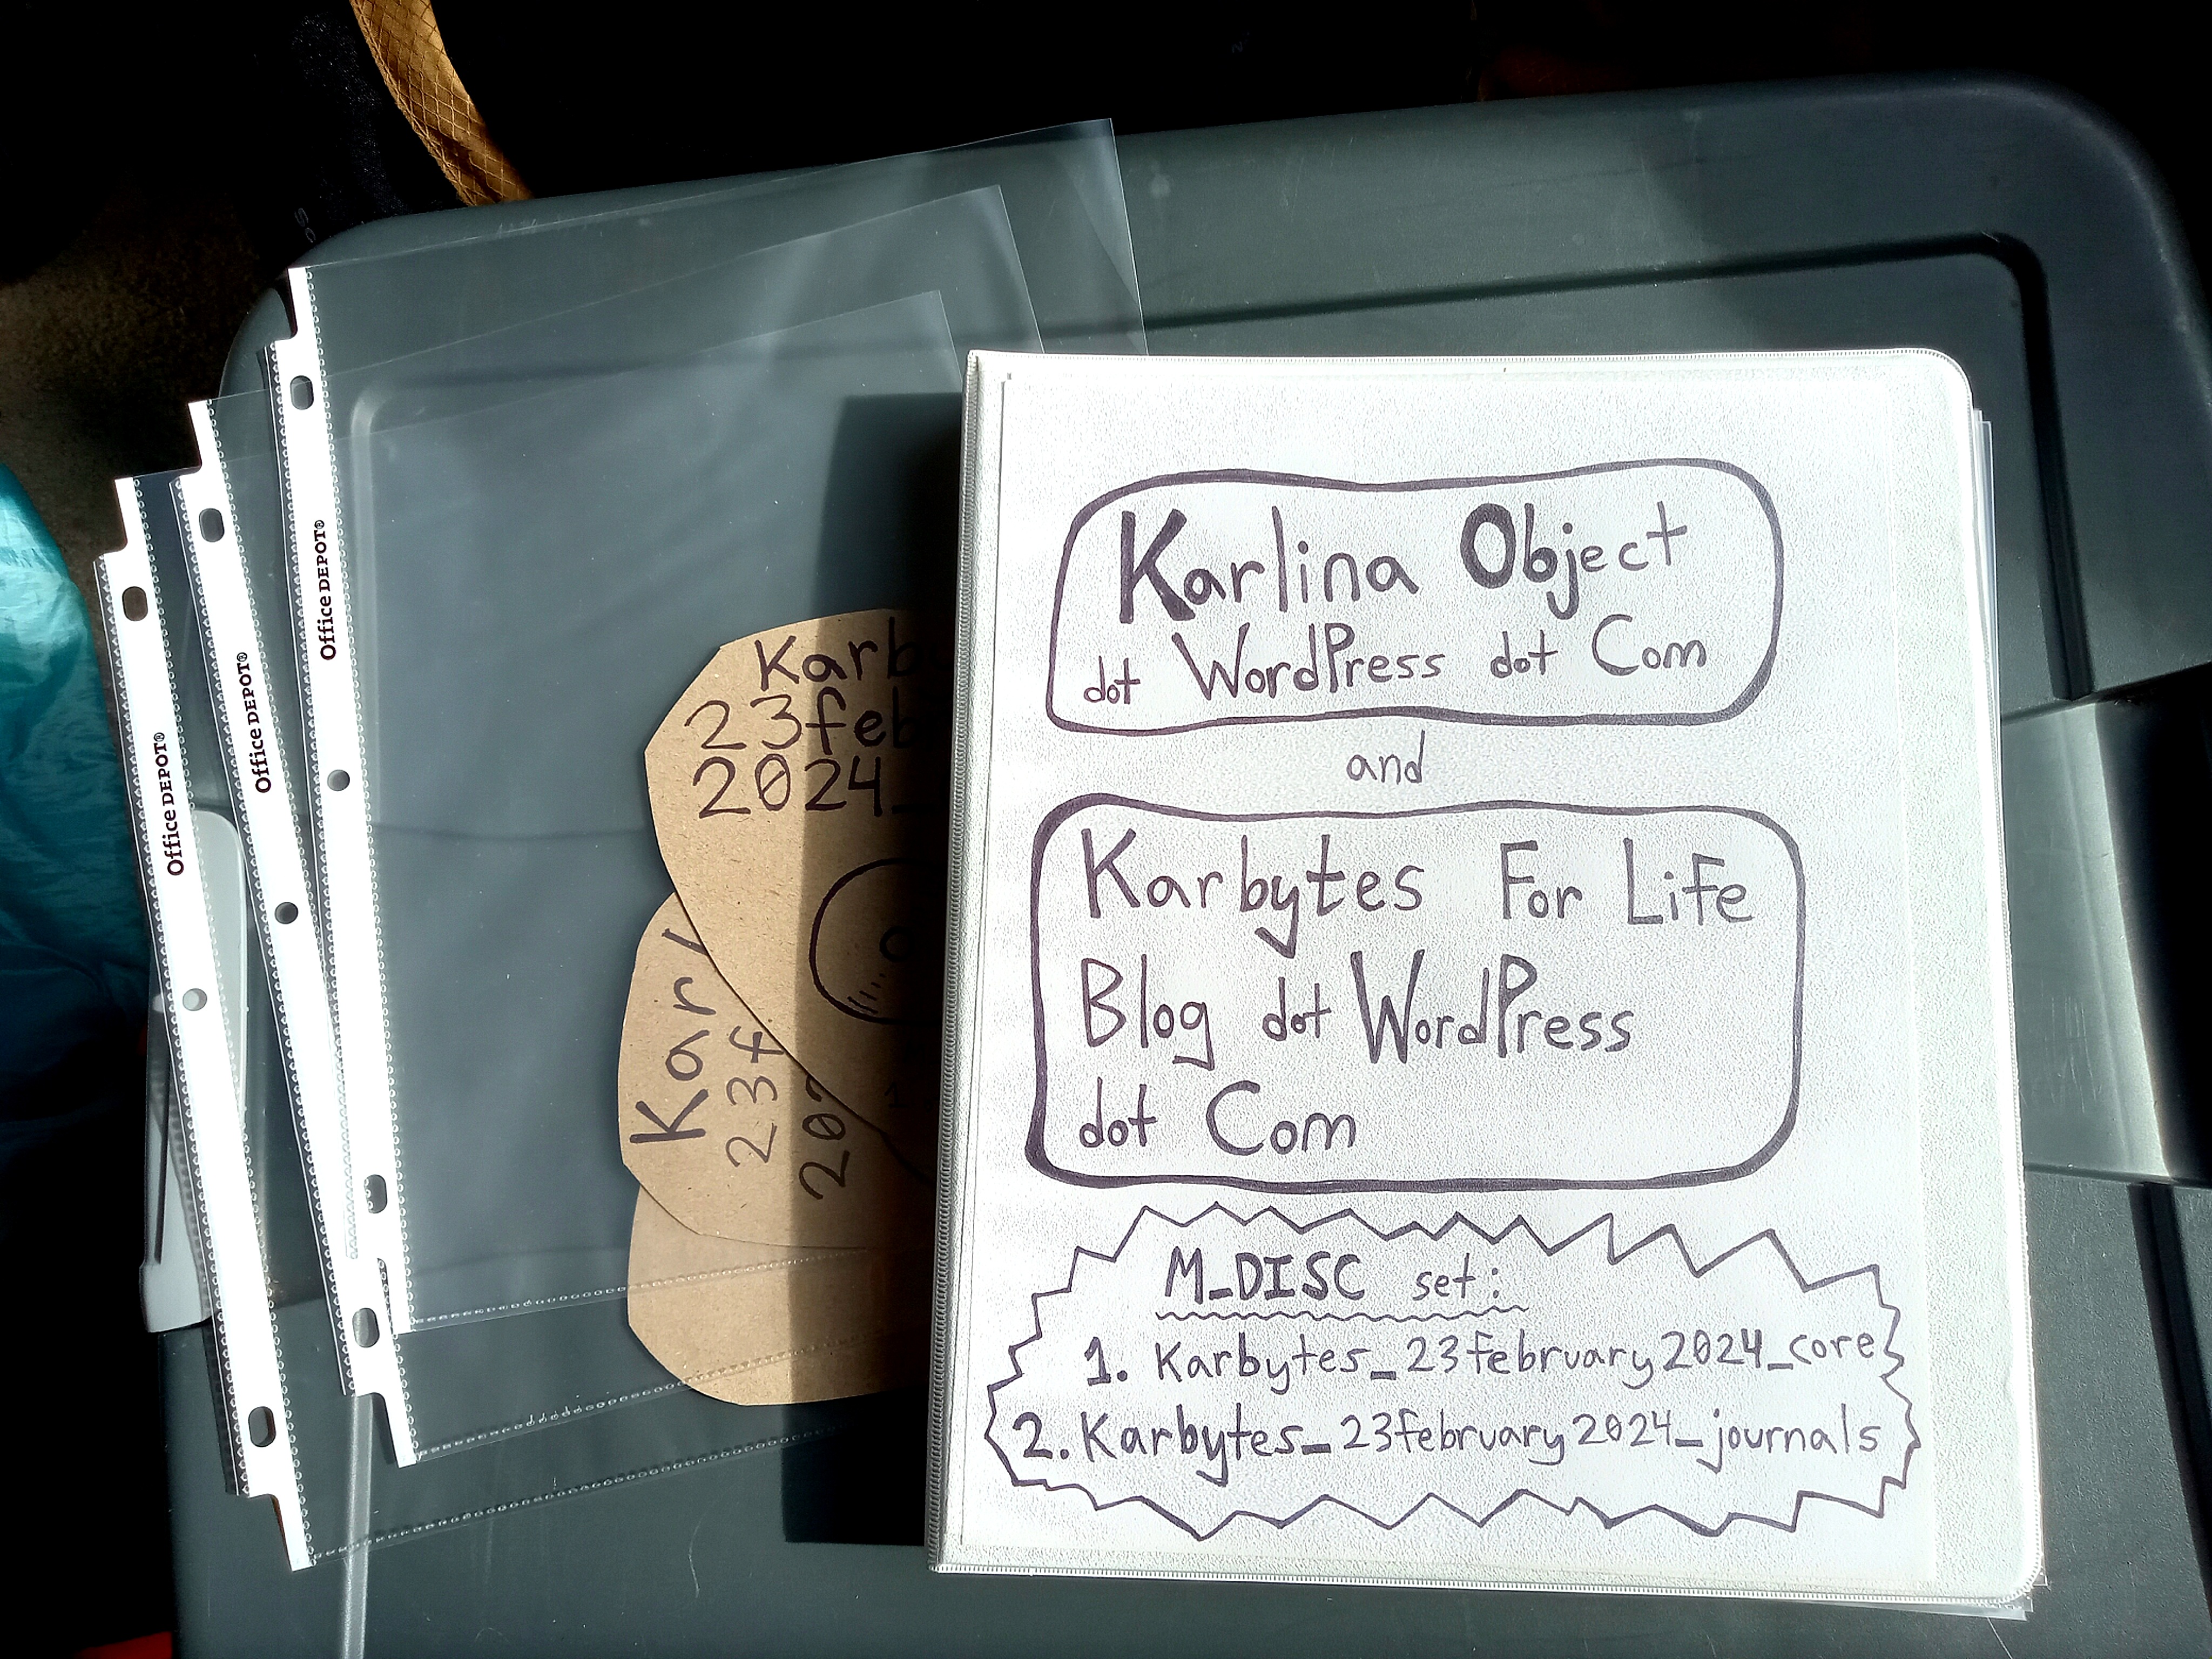 Office DEPOT®
Office DEPOT®
Office DEPOT®
Karb
23feb
2024_
Kar
23f
202
Karlina Object
dot WordPress dot Com
and
Karbytes For Life
Blog dot WordPress
dot Com
M_DISC set:
1. Karbytes_23february2024_core
2. Karbytes_23february2024_journals